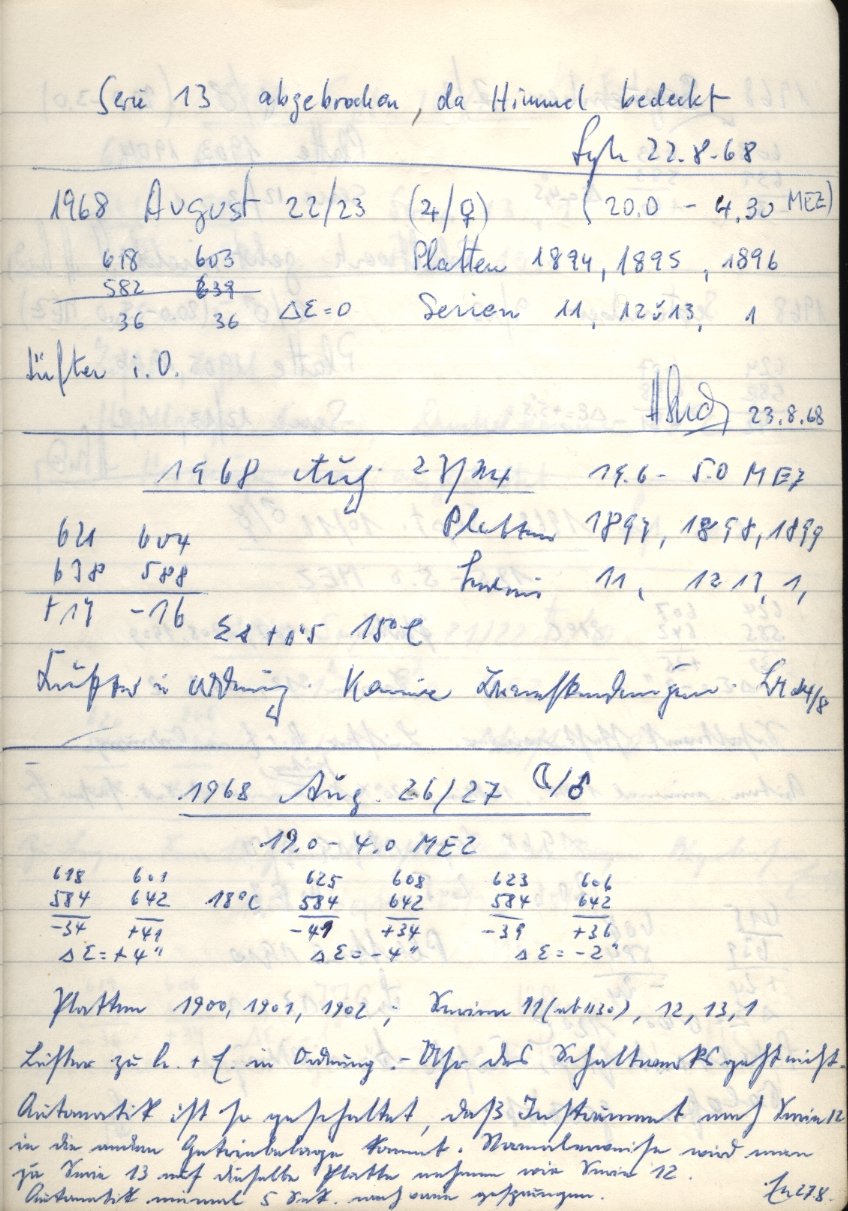 Serie 13 abgebrochen, da Himmel bedeckt
22.8.68
1968 August 22/23 (♃/♀) (20.0 - 4.30 MEZ)
618 603 Platten 1894, 1895, 1896
582 639
36 36 ΔΣ=0 Serien 11, 12 u. 13, 1
Lüfter i.O.
23.8.68
1968 Aug. 23/24 19.6 - 5.0 MEZ
621 604 Platten 1897, 1898, 1899
638 588 Serien 11, 12 13, 1,
+17 -16
15°C
Lüfter in Ordnung. Keine 24/8
1968 Aug. 26/27 ☾/♂
19.0 - 4.0 MEZ
618 601 625 608 623 606
584 642 18°C 584 642 584 642
-34 +41 -41 +34 -39 +36
ΔΣ=+4" ΔΣ=-4" ΔΣ=-2"
Platten 1900, 1901, 1902; Serien 11 (ab 1130), 12, 13, 1
Lüfter zu k. + l. in Ordnung. - Uhr des Schaltwerks geht nicht.
Automatik ist so geschaltet, daß Instrument nach Serie 12
in die andere Getriebelage kommt. Normalerweise wird man
zu Serie 13 auf dieselbe Platte nehmen wie Serie 12.
Automatik einmal 5 Sek. nach gesprungen. 27.8.